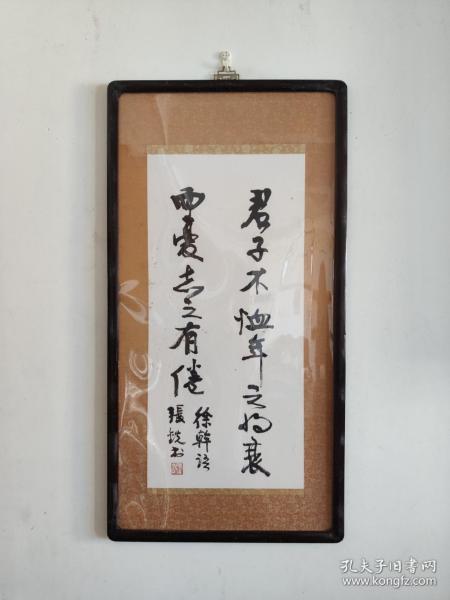 君子不恤年之将衰
而憂志之有倦
徐幹語
張銳书
孔夫子旧书网
www.kongfz.com